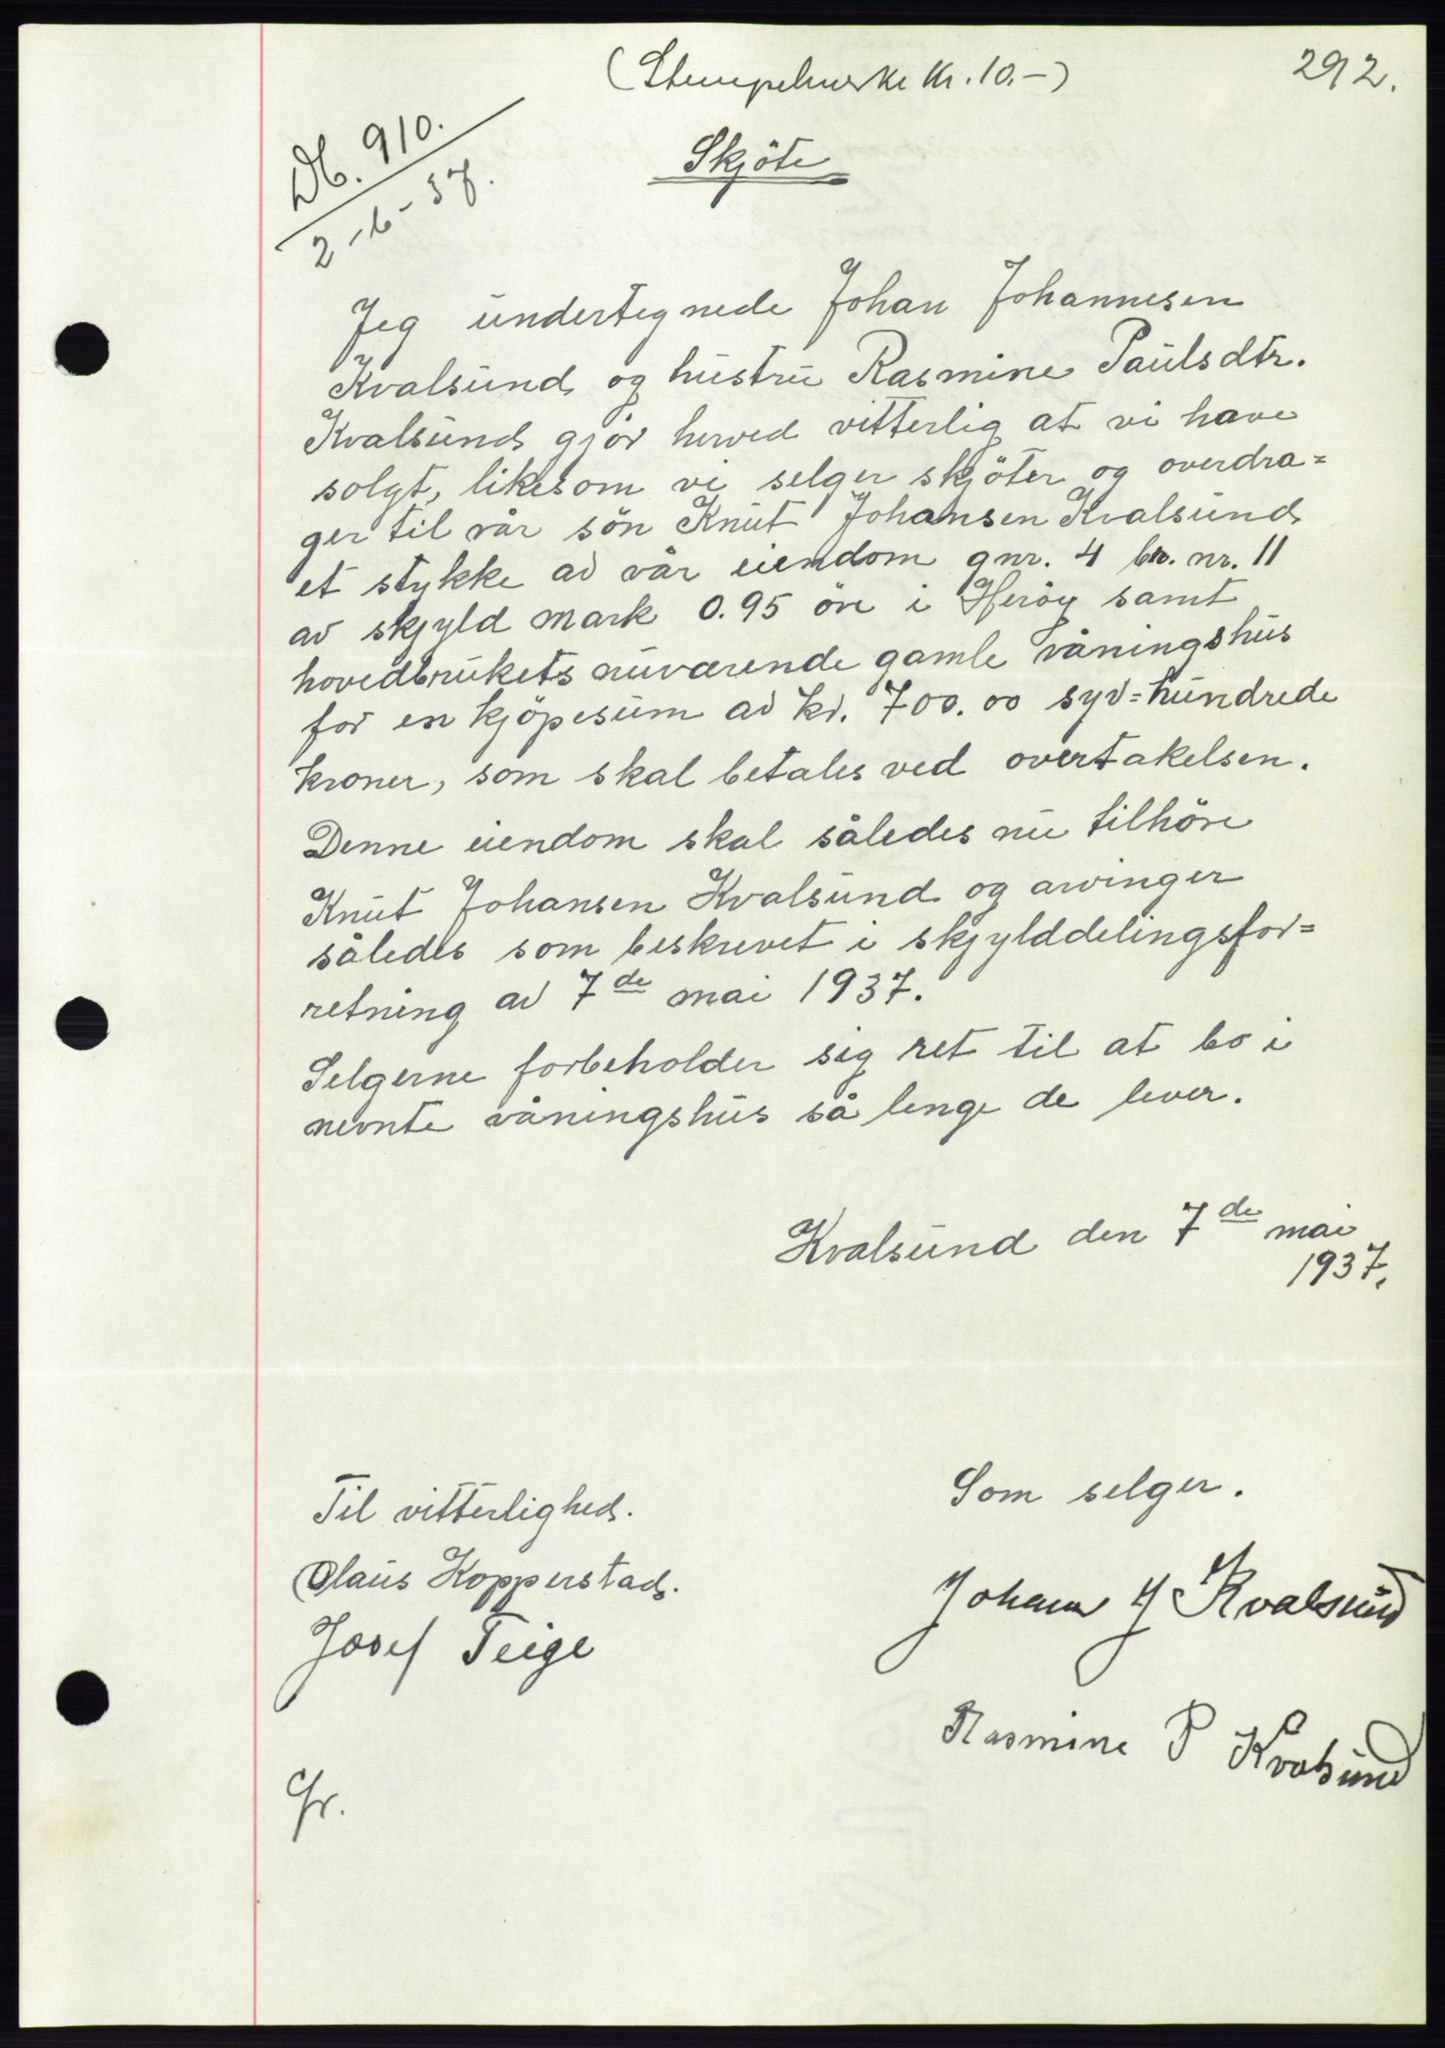 (Stempelmerke kr. 10.-)
292.
Db. 910.
2-6-37.
Skjöte
Jeg undertegnede Johan Johannesen
Kvalsund og hustru Rasmine Paulsdtr.
Kvalsund gjör herved vitterlig at vi have
solgt, likesom vi selger skjöter og overdra=
ger til vår sön Knut Johansen Kvalsund
et stykke av vår eiendom gnr. 4 br. nr. 11
av skjyld mark 0.95 öre i Heröy samt
hovedbrukets nuværende gamle våningshus
for en kjöpesum av kr. 700.00 syv=hundrede
kroner, som skal betales ved overtakelsen.
Denne eiendom skal således nu tilhöre
Knut Johansen Kvalsund og arvinger
således som beskrevet i skjylddelingsfor=
retning av 7de mai 1937.
Selgerne forbeholder sig ret til at bo i
nevnte våningshus så lenge de lever.
Kvalsund den 7de mai
1937.
Til vitterlighed.
Som selger.
Olaus Kopperstad.
Johan J Kvalsund
Josef Teige
Rasmine P Kvalsund